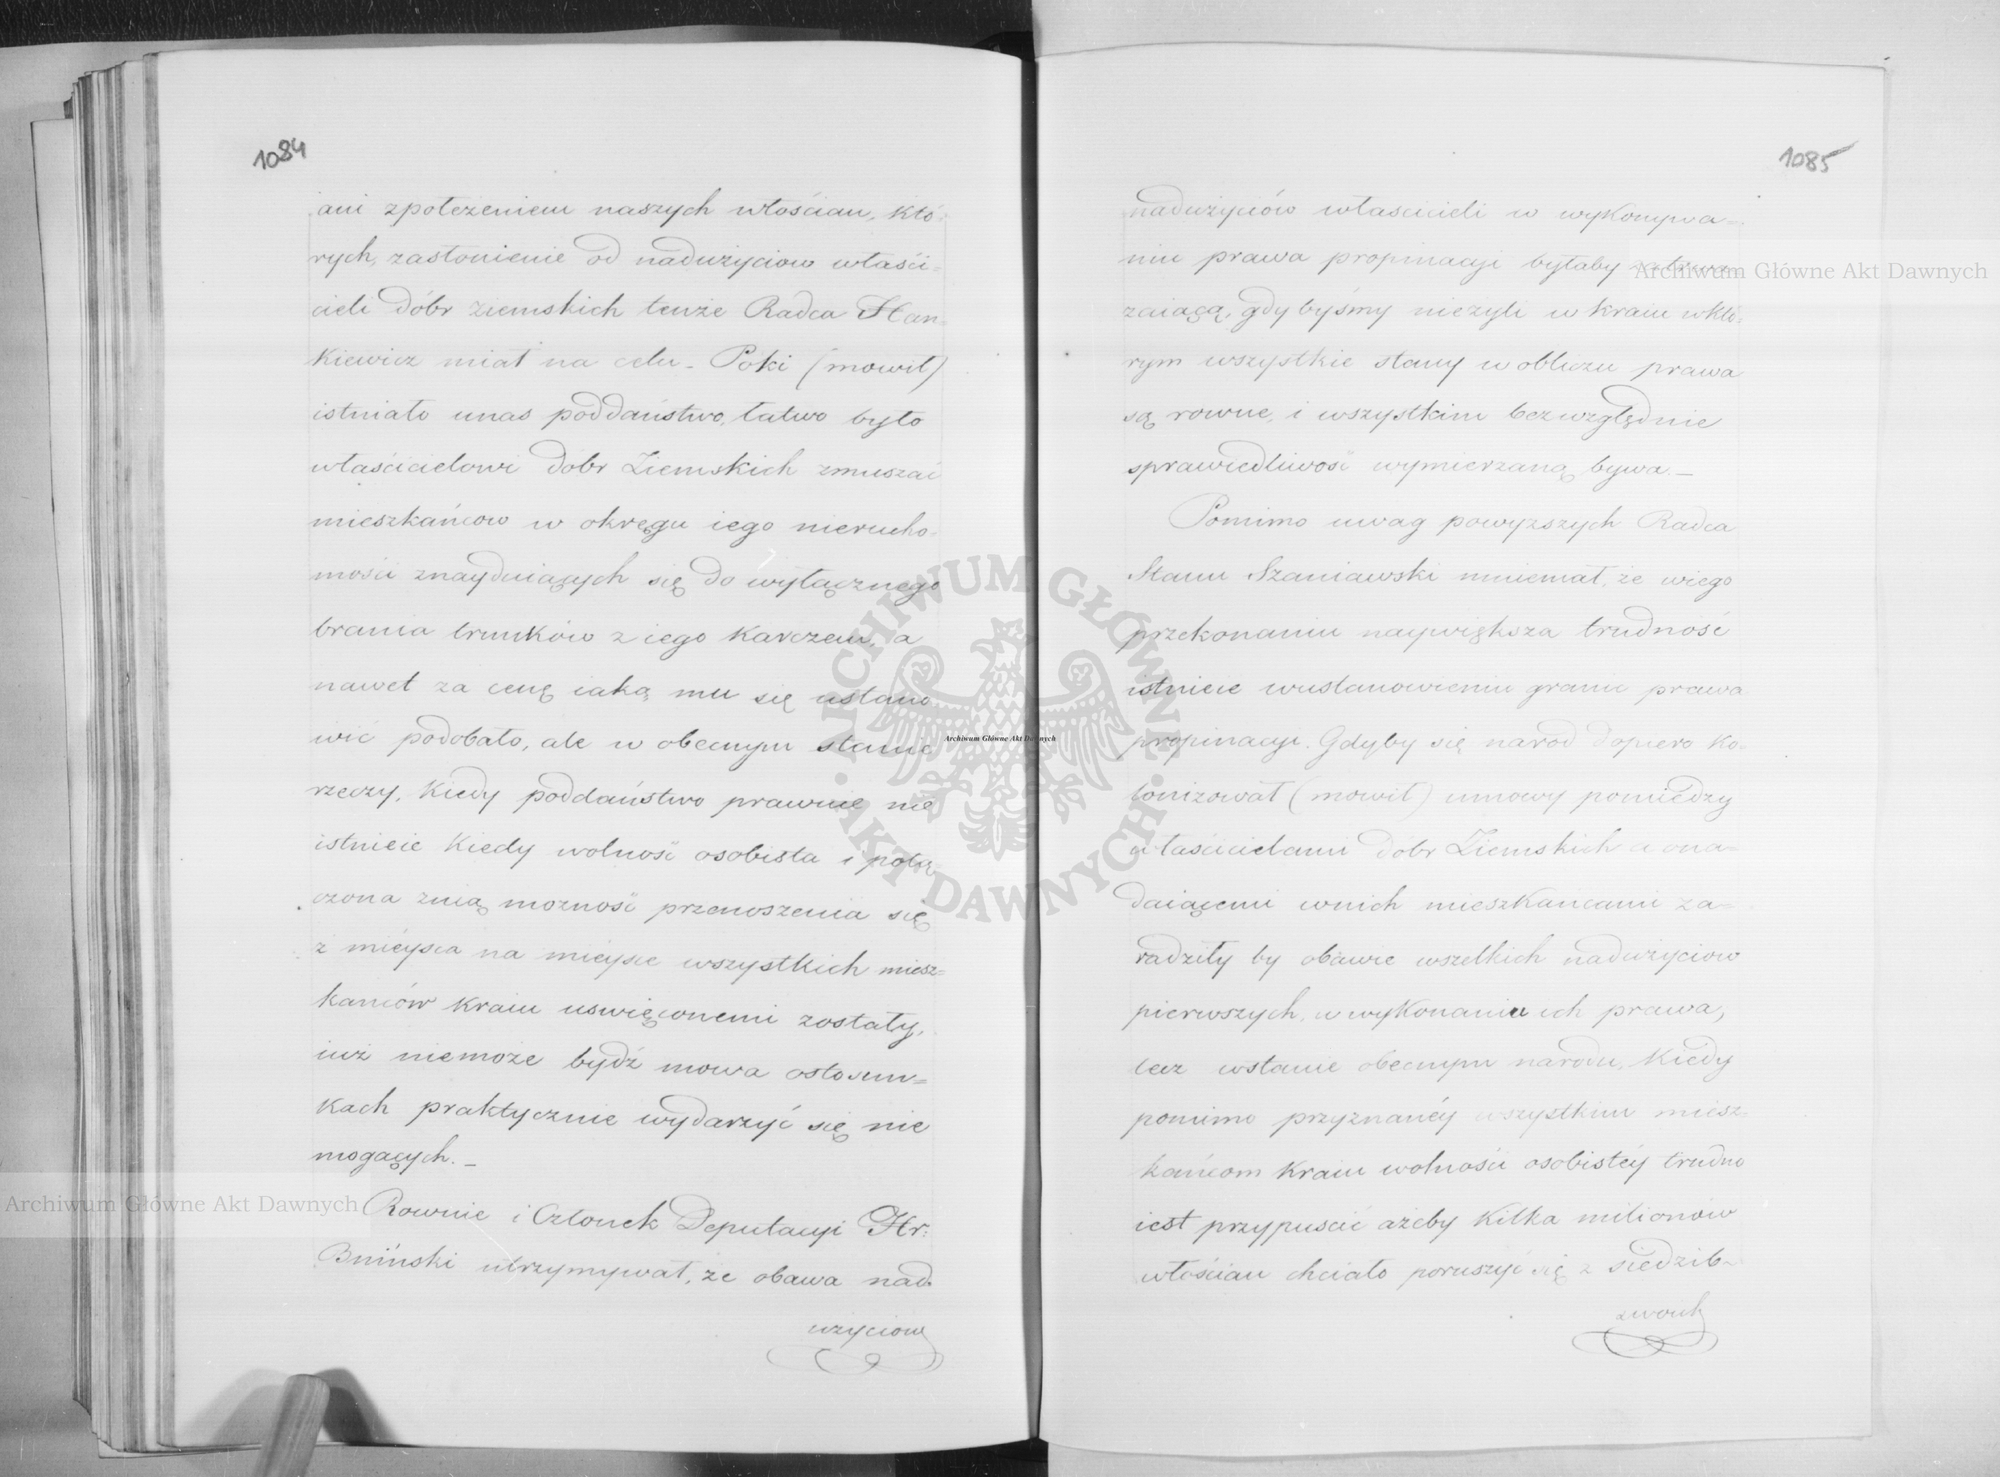 1084
ani zpołeżeniem naszych włościan, któ-
rych, zasłonienie od nadużyciow właści=
cieli dóbr ziemskich tenże Radca Stan=
kiewicz miał na celu - Poki (mowił)
istniało unas poddaństwo, łatwo było
właścicielowi dóbr Ziemskich zmuszać
mieszkańcow w okręgu iego nierucho-
mości znayduiących się do wyłącznego
brania trunków z iego karczem, a
nawet za cenę iaką mu się ustano
wić podobało, ale w obecnym stanie
rzeczy, Kiedy poddaństwo prawnie nie
istnieie Kiedy wolność osobista i połą-
czona znią możność przenoszenia się
z mieysca na mieysce wszystkich miesz=
kańców Kraiu uswięconemi zostały,
iuż niemoże bydź mowa ostosun=
kach praktycznie wydarzyć się nie
mogących. -
Rownie i Członek Deputacyi Hr:
Bniński utrzymywał, że obawa nad
użyciow
1085
nadużyciów właścicieli w wykonywa=
niu prawa propinacyi byłaby
zaiącą, gdybyśmy nieżyli w kraiu wktó-
rym wszystkie stany w obliczu prawa
są rowne, i wszystkim bezwzględnie
sprawiedliwość wymierzaną bywa. -
Pomimo uwag powyższych Radca
Stanu Szaniawski mniemał, że wiego
przekonaniu naywiększa trudność
istnieie wustanowieniu granic prawa
propinacyi. Gdyby się narod dopiero ko-
lonizował (mowił) umowy pomiedzy
właścicielami dóbr Ziemskich a osia=
daiącemi wnich mieszkancami za=
radziły by obawie wszelkich nadużyciow
pierwszych, w wykonaniu ich prawa,
lecz wstanie obecnym narodu, Kiedy
pomimo przyznanéy wszystkim miesz-
kańcom Kraiu wolności osobistéy trudno
iest przypuscić ażeby Kilka milionów
włościan chciało poruszyć się z siedzib
zwoich
Archiwum Główne Akt Dawnych
Archiwum Główne Akt Dawnych
Archiwum Główne Akt Dawnych
ARCHIWUM GŁÓWNE AKT DAWNYCH